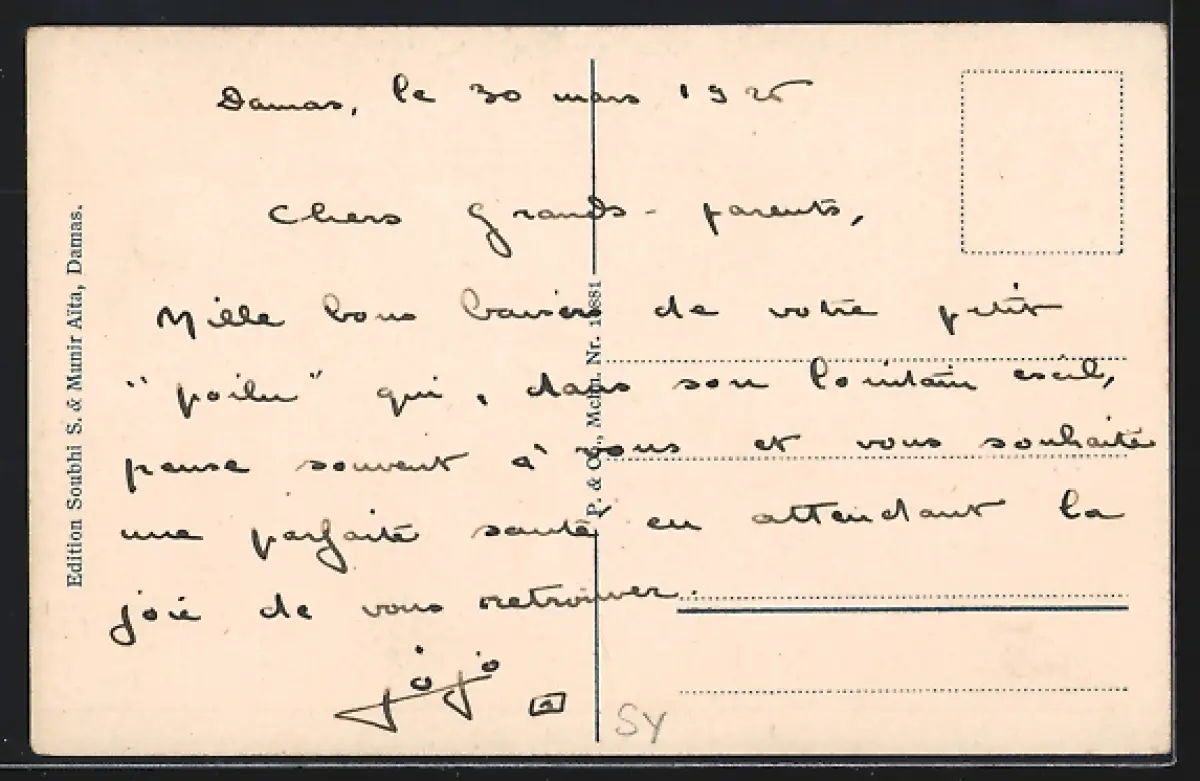 Damas, le 30 mars 1925
Chers Grands-parents,
Mille bons baisers de votre petit
"poilu" qui, dans son lointain exil,
pense souvent à vous et vous souhaite
une parfaite santé en attendant la
joie de vous retrouver.
Jojo
SY
Edition Soubhi S. & Munir Aïta, Damas.
P. & Co., Mchn. Nr.